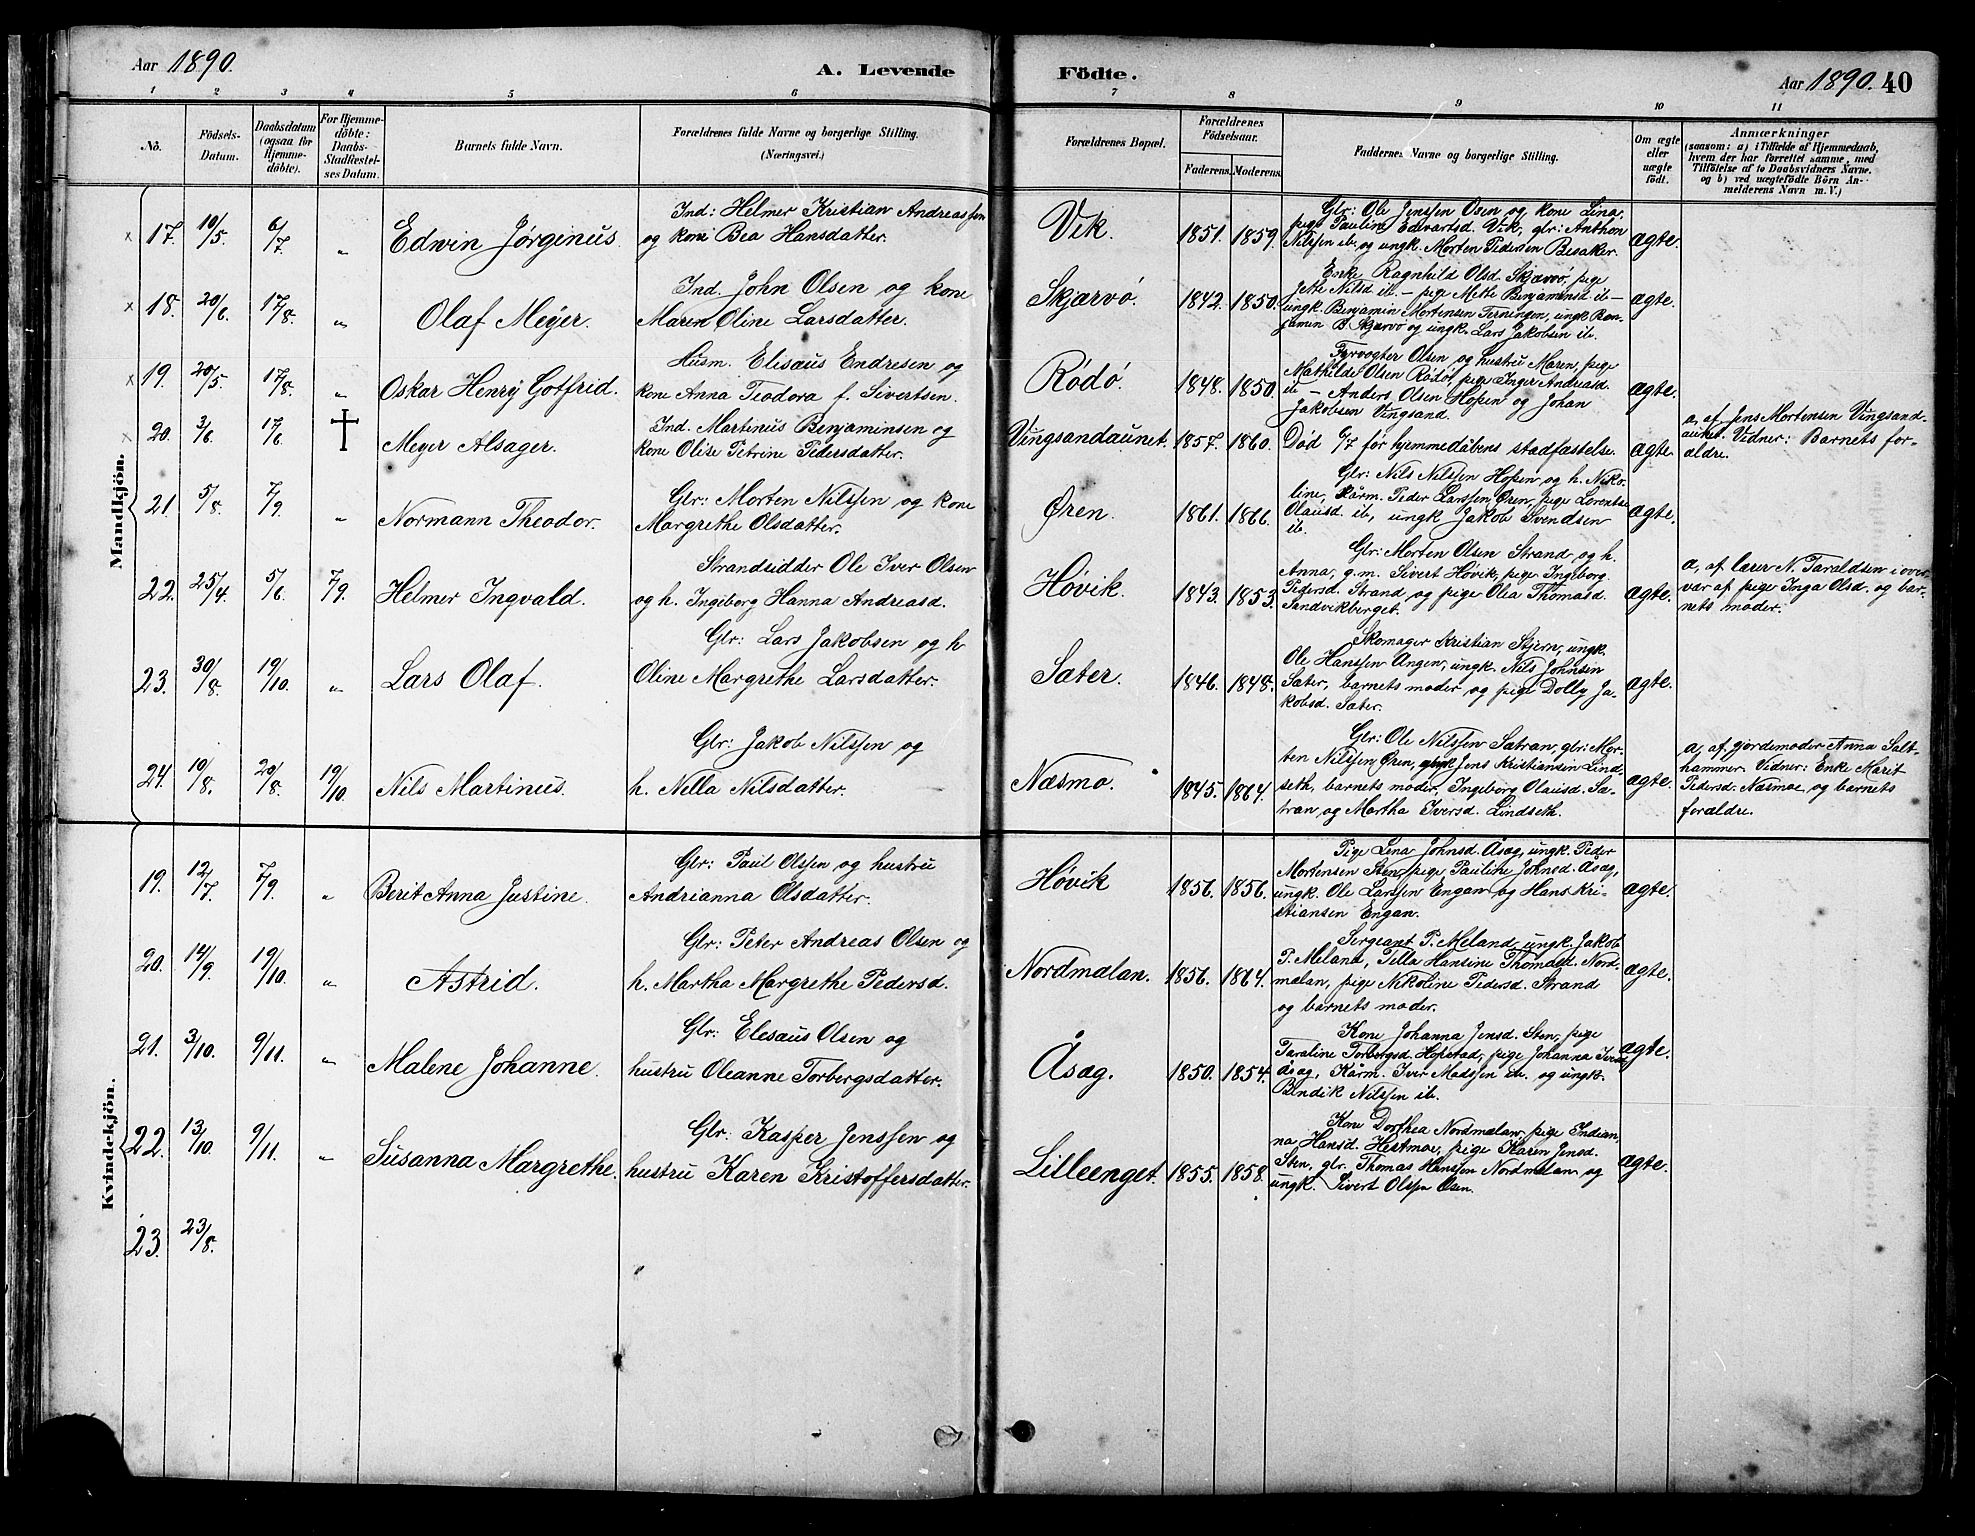 Aar 1890.
A. Levende
Födte.
Aar 1890. 40
1 2 3 4 5 6 7 8 9 10 11
No.
Födsels-
Datum.
Daabsdatum
(ogsaa for
Hjemme-
döbte).
For Hjemme-
döbte:
Daabs-
Stadfæstel-
ses Datum.
Barnets fulde Navn.
Forældrenes fulde Navne og borgerlige Stilling.
(Næringsvei.)
Forældrenes Bopæl.
Forældrenes
Födselsaar.
Faderens. Moderens.
Faddernes Navne og borgerlige Stilling.
Om ægte
eller
uægte
født.
Anmærkninger
(saasom: a) i Tilfælde af Hjemmedaab,
hvem der har forrettet samme, med
Tilföielse af to Daabsvidners Navne.
og b) ved uægtefödte Börn An-
melderens Navn m. V.)
Mandkjön.
x 17. 10/5. 6/7. „ Edwin Jørginus.
Ind: Helmer Kristian Andreassen
og kone Bea Hansdatter.
Vik. 1851. 1859.
Glr: Ole Jenssen Osen og kone Lina,
pige Pauline Edvartsd. Vik, glr: Anthon
Nilssen ib. og ungk. Morten Pedersen Besaker.
ægte.
x 18. 20/6. 17/8. „ Olaf Meyer.
Ind. John Olsen og kone
Maren Oline Larsdatter.
Skjærvø. 1842. 1850.
Enke Ragnhild Olsd. Skjærvø, pige
Jette Nilsd ib. – pige Mette Benjaminsd ib –
ungk. Benjamin Mortensen Terningen, ungk Ben-
jamin B. Skjærvø og ungk. Lars Jakobsen ib.
ægte.
x 19. 20/5. 17/8. „ Oskar Henry Gotfrid.
Husm. Elisæus Endresen og
kone Anna Teodora f. Sivertsen.
Rödö. 1848. 1850.
Fyrvogter Olsen og hustru Maren, pige
Mathilde Olsen Rødø, pige Inger Andreasd.
ib – Anders Olsen Hopen og Johan
Jakobsen Vingsand.
ægte.
x 20. 3/6. 17/6. † Meyer Alsager.
Ind. Martinus Benjaminsen og
kone Olise Petrine Pedersdatter.
Vingsandaunet. 1857. 1860.
Død 6/7 for hjemmedåbens stadfæstelse.
ægte.
a, af Jens Mortensen Vingsand-
aunet. Vidner: Barnets for-
ældre.
21. 5/8. 7/9. „ Normann Theodor.
Glr: Morten Nilssen og kone
Margrethe Olsdatter.
Øren. 1861. 1866.
Glr: Nils Nilssen Hopen og h. Niko-
line, kårm. Peder Larssen Øren, pige Lorentse
Olausd. ib, ungk Jakob Svendsen
ib.
ægte.
22. 25/4. 5/6. 7/9. Helmer Ingvald.
Strandsidder Ole Iver Olsen
og h. Ingeborg Hanna Andreasd.
Høvik. 1843. 1853.
Glr: Morten Olsen Strand og h.
Anna, g.m. Sivert Høvik, pige Ingeborg
Pedersd. Strand og pige Olea Thomasd.
Sandvikberget.
ægte.
a, af lærer N. Taraldsen i over-
vær af pige Inga Olsd. og bar-
nets moder.
23. 30/8. 19/10. „ Lars Olaf.
Glr: Lars Jakobsen og h
Oline Margrethe Larsdatter.
Sæter. 1846. 1848.
Skomager Kristian Stjern, ungk.
Ole Hanssen Angen, ungk. Nils Johnsen
Sæter, barnets moder og pige Dolly Ja-
kobsd. Sæter.
ægte.
24. 19/8. 20/8. 19/10. Nils Martinus.
Glr: Jakob Nilssen og
h. Nella Nilsdatter.
Næsmo. 1845. 1864.
Glr: Ole Nilssen Sætran, glr: Mor-
ten Nilssen Øren, Jens Kristiansen Lind-
seth, barnets moder, Ingeborg Olausd. Sæ-
tran, og Martha Iversd. Lindseth.
ægte.
a, af gjordemoder Anna Salt-
hammer. Vidner: Enke Marit
Pedersd. Næsmoe, og barnets
forældre.
Kvindekjön.
19. 12/7. 7/9. „ Berit Anna Justine.
Glr: Paul Olssen og hustru
Andrianna Olsdatter.
Høvik 1856. 1856.
Pige Lena Johnsd. Åsæg, ungk. Peder
Mortensen Sten, pige Pauline Johnsd. Åsæg,
ungk. Ole Larssen Engan og Hans Kri-
stiansen Engan.
ægte.
20. 14/9. 19/10. „ Astrid.
Glr: Peter Andreas Olsen og
h. Martha Margrethe Pedersd.
Nordmelan. 1856. 1864.
Sergeant P. Meland, ungk. Jakob
P. Meland, Pella Hansine Thomasd. Nord-
melan, pige Nikoline Pedersd. Strand
og barnets moder.
ægte.
21. 3/10. 9/11. „ Malene Johanne.
Glr: Elesæus Olsen og
hustru Oleanne Torbergsdatter.
Åsæg. 1850. 1854.
Kone Johanna Jensd. Sten, pige
Taraline Torbergsd. Hopstad, pige Johanna Iversd
åsæg, Kårm. Iver Madssen ib. og ungk.
Bendik Nilssen ib.
ægte.
22. 13/10. 9/11. „ Susanna Margrethe.
Glr: Kasper Jenssen og
hustru Karen Kristoffersdatter.
Lilleenget. 1855. 1858.
Kone Dorthea Nordmelan, pige Indian-
na Hansd. Hestmoe, pige Karen Jensd.
Sten, glr. Thomas Hanssen Nordmelan og
ungk. Sivert Olssen Osen.
ægte.
23. 23/8.